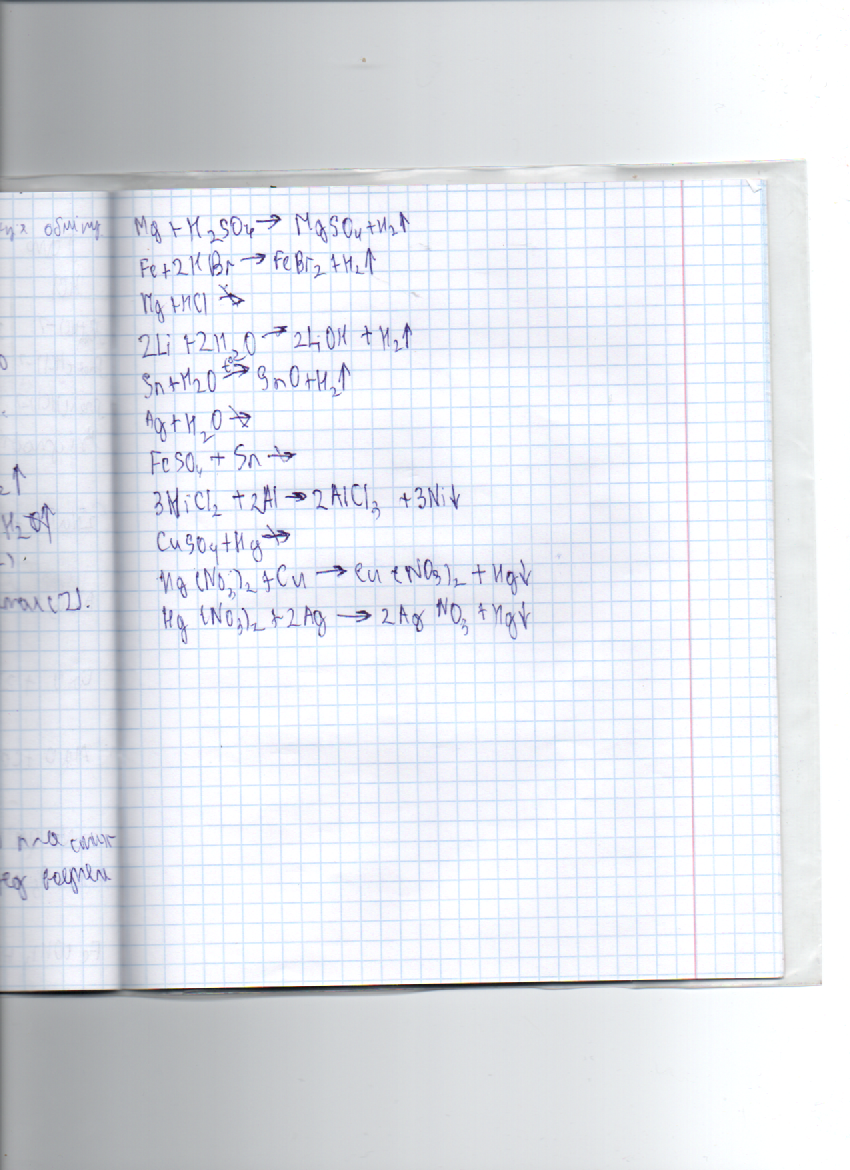 обміну
Mg + H₂SO₄ → MgSO₄ + H₂↑
Fe + 2HBr → FeBr₂ + H₂↑
Hg + HCl ↛
2Li + 2H₂O → 2LiOH + H₂↑
Sn + H₂O t°C→ SnO + H₂↑
Ag + H₂O ↛
FeSO₄ + Sn ↛
3NiCl₂ + 2Al → 2AlCl₃ + 3Ni↓
CuSO₄ + Hg ↛
Hg(NO₃)₂ + Cu → Cu(NO₃)₂ + Hg↓
Hg(NO₃)₂ + 2Ag → 2AgNO₃ + Hg↓